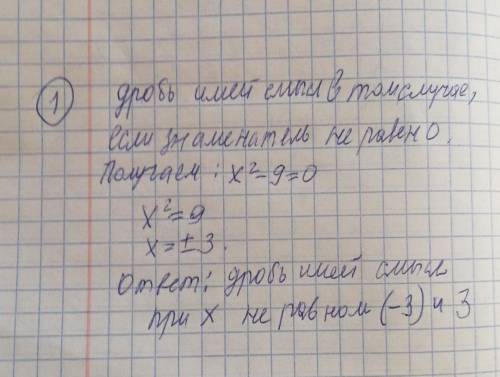 1 дробь имей смысл в том случае,
если знаменатель не равен 0.
Получаем: x²-9=0
x²=9
x=±3.
Ответ: дробь имей смысл
при x не равном (-3) и 3